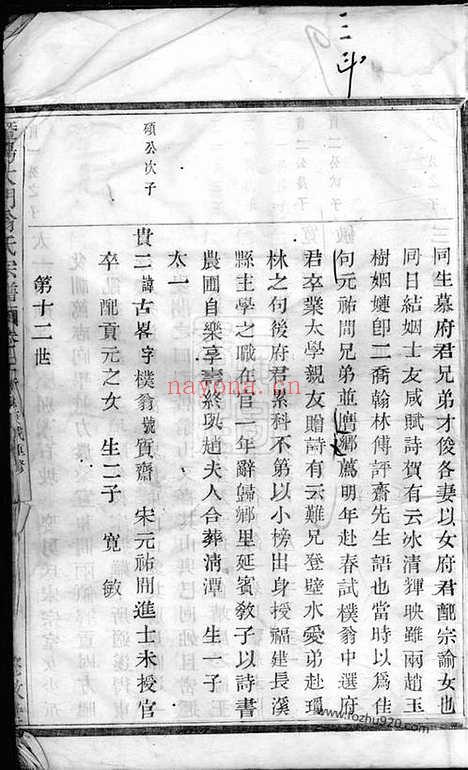 三斗
同生慕府君兄弟才俊各妻以女府君配宗諭女也
同日結姻士友咸賦詩賀有云冰清輝映雖兩趙玉
樹姻嬚卽二喬翰林傳評齋先生語也當時以爲佳
句元祐間兄弟並膺鄉薦明年赴春試樸翁中選府
君卒業太學親友贈詩有云難兄登壁水愛弟赴瓊
林之句後府君累科不第以小榜出身授福建長溪
縣主學之職在官一年辭歸鄉里延賓教子以詩書
農圃自樂享壽終
趙夫人合葬淸潭 生一子
太一
碩公次子
貴二 諱古畧字樸翁號質齋 宋元祐間進士未授官
卒 配貢元之女 生二子 寬 敏
第十二世
氏宗譜
nayona.cn
www.fozhu920.com